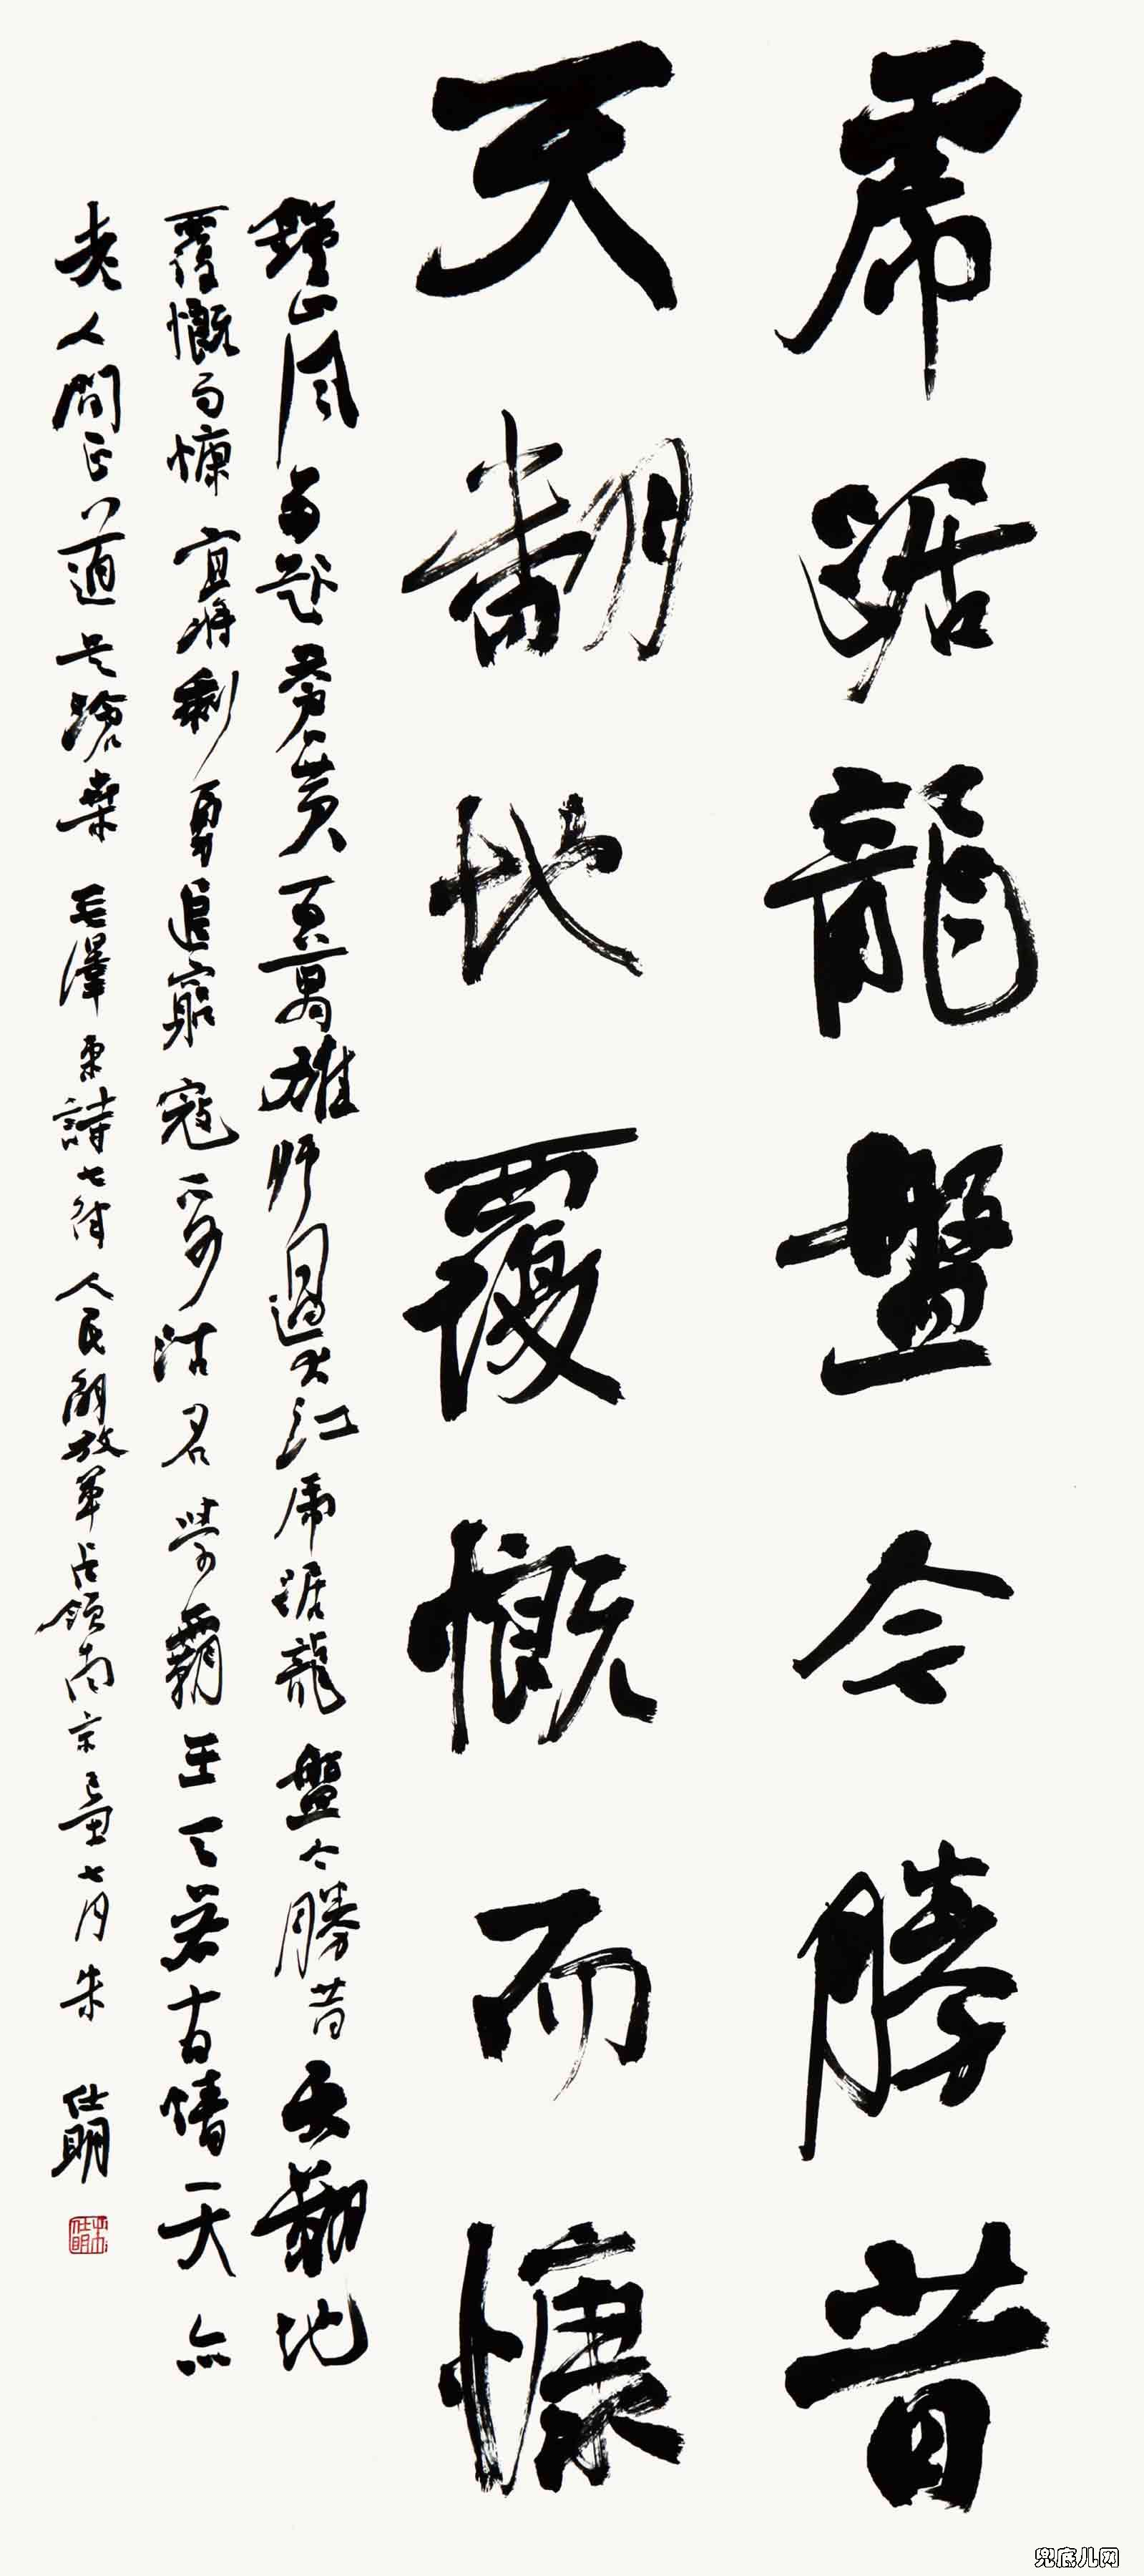 虎踞龍盤今勝昔
天翻地覆慨而慷
鍾山風雨起蒼黃百萬雄師過大江虎踞龍盤今勝昔天翻地
覆慨而慷宜將剩勇追窮寇不可沽名學霸王天若有情天亦
老人間正道是滄桑 毛澤東詩七律人民解放軍占領南京己丑七月朱仕明
朱仕明
兜底儿网